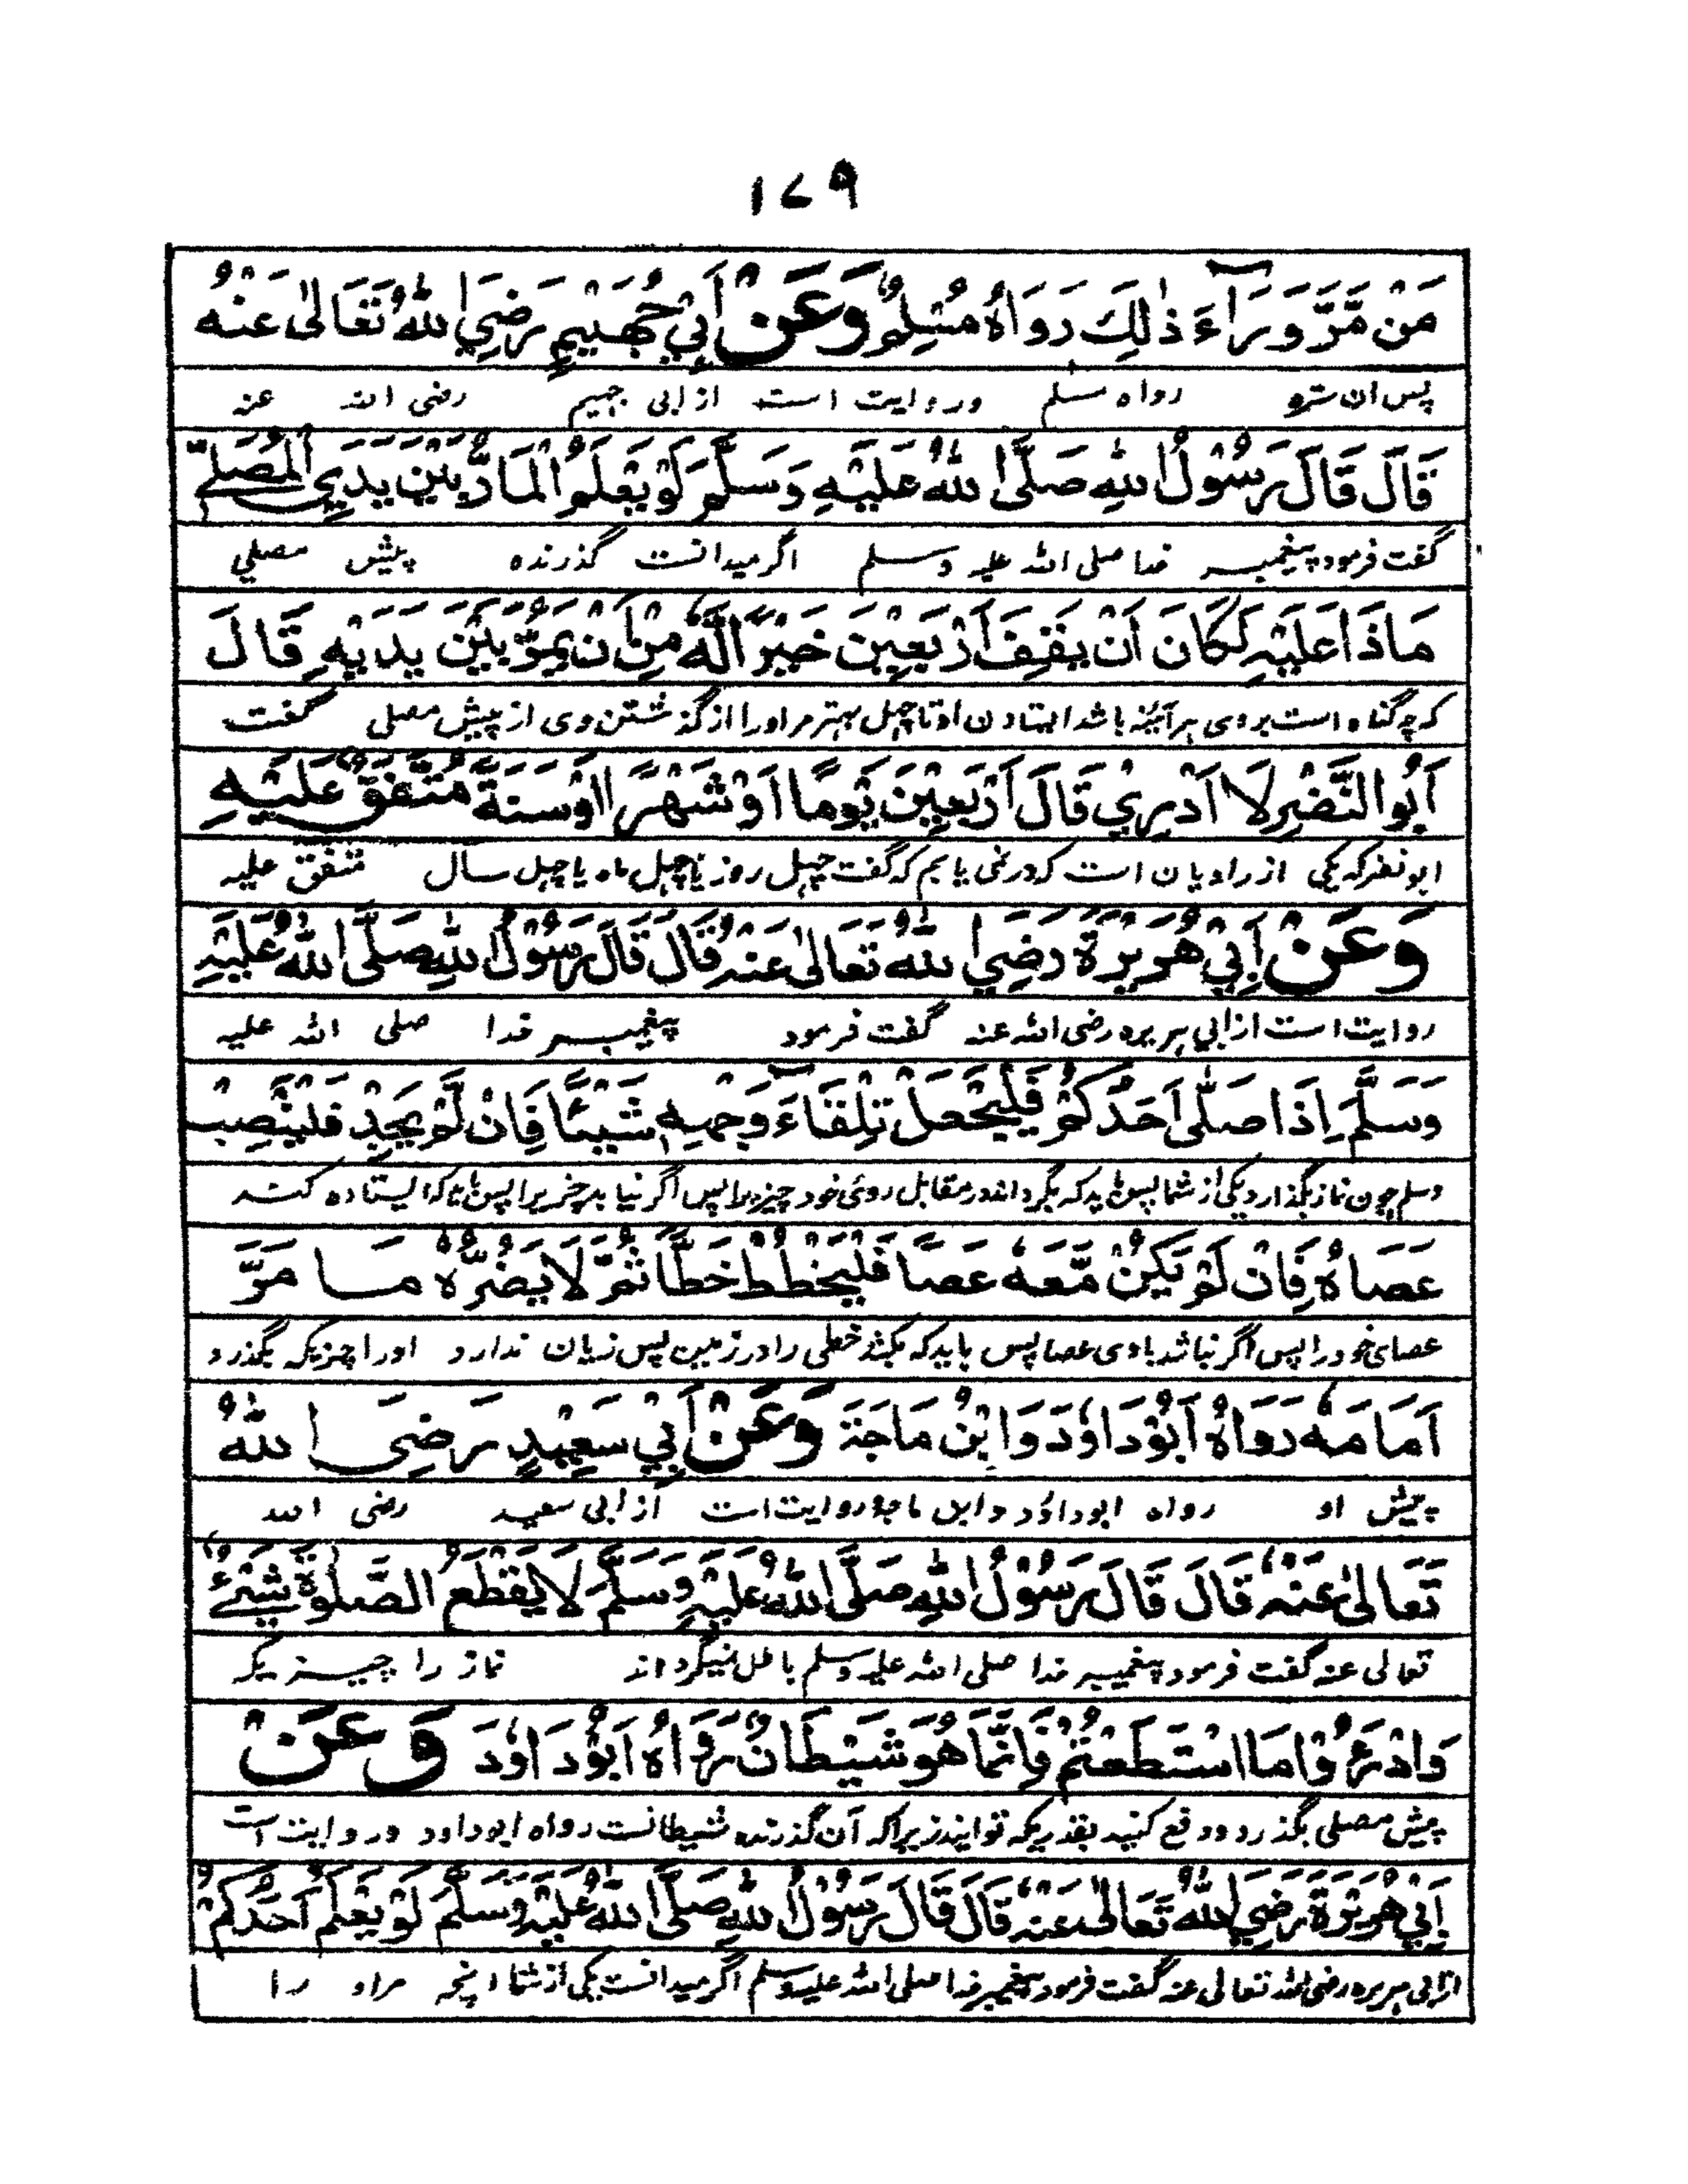 ١٧٩
مَنْ مَّرَّ وَرَآءَ ذٰلِكَ رَوَاهُ مُسْلِمٌ وَعَنْ أَبِيْ جُهَيْمٍ رَضِيَ اللّٰهُ تَعَالٰى عَنْهُ
پس ان ستره رواه مسلم وروایت است از ابی جهیم رضی الله عنه
قَالَ قَالَ رَسُوْلُ اللّٰهِ صَلَّى اللّٰهُ عَلَيْهِ وَسَلَّمَ لَوْ يَعْلَمُ الْمَارُّ بَيْنَ يَدَيِ الْمُصَلِّيْ
گفت فرمود پیغمبر خدا صلی الله علیه وسلم اگر میدانست گذرنده پیش مصلي
مَاذَا عَلَيْهِ لَكَانَ اَنْ يَقِفَ اَرْبَعِيْنَ خَيْرًا لَّهٗ مِنْ اَنْ يَمُرَّ بَيْنَ يَدَيْهِ قَالَ
که چه گناه است بر وی هرآئینه باشد ایستادن او تا چهل بهتر مر او را از گذشتن وی از پیش مصلی گفت
اَبُو النَّضْرِ لَا اَدْرِيْ قَالَ اَرْبَعِيْنَ يَوْمًا اَوْ شَهْرًا اَوْ سَنَةً مُتَّفَقٌ عَلَيْهِ
ابو نضر که یکی از راویان است که در نمی یابم که گفت چهل روز یا چهل ماه یا چهل سال متفق علیه
وَعَنْ اَبِيْ هُرَيْرَةَ رَضِيَ اللّٰهُ تَعَالٰى عَنْهُ قَالَ قَالَ رَسُوْلُ اللّٰهِ صَلَّى اللّٰهُ عَلَيْهِ
روایت است از ابي هریره رضی الله عنه گفت فرمود پیغمبر خدا صلی الله علیه
وَسَلَّمَ اِذَا صَلّٰى اَحَدُكُمْ فَلْيَجْعَلْ تِلْقَآءَ وَجْهِهٖ شَيْئًا فَاِنْ لَّمْ يَجِدْ فَلْيَنْصِبْ
وسلم چون نماز بگذارد یکی از شما پس باید که بگرداند در مقابل روئی خود چیزیرا پس اگر نیابد چیزیرا پس باید که ایستاده کند
عَصَاهُ فَاِنْ لَّمْ يَكُنْ مَّعَهٗ عَصًا فَلْيَخْطُطْ خَطًّا ثُمَّ لَا يَضُرُّهٗ مَا مَرَّ
عصای خود را پس اگر نباشد با وی عصا پس باید که بکشد خطی را در زمین پس زیان ندارد او را چیزیکه بگذرد
اَمَامَهٗ رَوَاهُ اَبُوْ دَاوٗدَ وَابْنُ مَاجَةَ وَعَنْ اَبِيْ سَعِيْدٍ رَضِيَ اللّٰهُ
پیش او رواه ابوداؤد وابن ماجه روایت است از ابی سعید رضی الله
تَعَالٰى عَنْهُ قَالَ قَالَ رَسُوْلُ اللّٰهِ صَلَّى اللّٰهُ عَلَيْهِ وَسَلَّمَ لَا يَقْطَعُ الصَّلٰوةَ شَيْءٌ
تعالی عنه گفت فرمود پیغمبر خدا صلی الله علیه وسلم باطل نمیگرداند نماز را چیزیکه
وَادْرَءُوْا مَا اسْتَطَعْتُمْ فَاِنَّمَا هُوَ شَيْطَانٌ رَوَاهُ اَبُوْ دَاوٗدَ وَعَنْ
پیش مصلی بگذرد ودفع کنید بقدریکه توانید زیراکه آن گذرنده شیطانست رواه ابو داود وروایت است
اَبِيْ هُرَيْرَةَ رَضِيَ اللّٰهُ تَعَالٰى عَنْهُ قَالَ قَالَ رَسُوْلُ اللّٰهِ صَلَّى اللّٰهُ عَلَيْهِ وَسَلَّمَ لَوْ يَعْلَمُ اَحَدُكُمْ
از ابی هریره رضی الله تعالی عنه گفت فرمود پیغمبر خدا صلی الله علیه وسلم اگر میدانست یکی از شما انچه مراو را